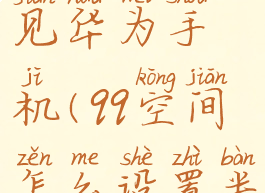 jiàn huá wéi shǒu
见华为手
jī kōng jiān
机(99空间
zěn me shè zhì bàn
怎么设置半